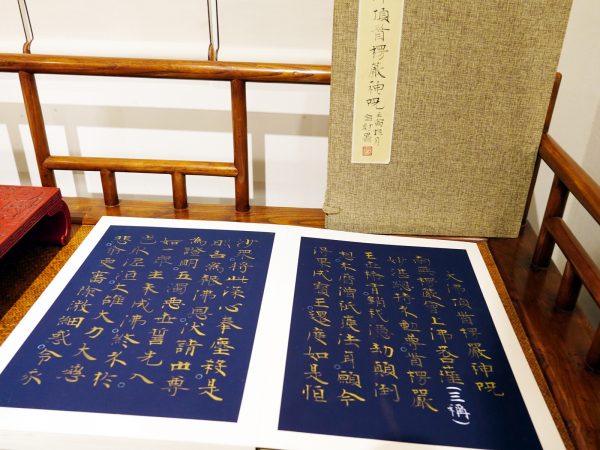 頂首楞嚴神呪
大佛頂首楞嚴神呪
南無楞嚴會上佛菩薩(三稱)
妙湛總持不動尊首楞嚴
王世希有銷我億劫顛倒
想不歷僧祇獲法身願今
得果成寶王還度如是恒
沙眾將此深心奉塵剎是
則名為報佛恩伏請世尊
為證明五濁惡世誓先入
如一眾生未成佛終不於
此取泥洹大雄大力大慈
悲希更審除微細惑令我